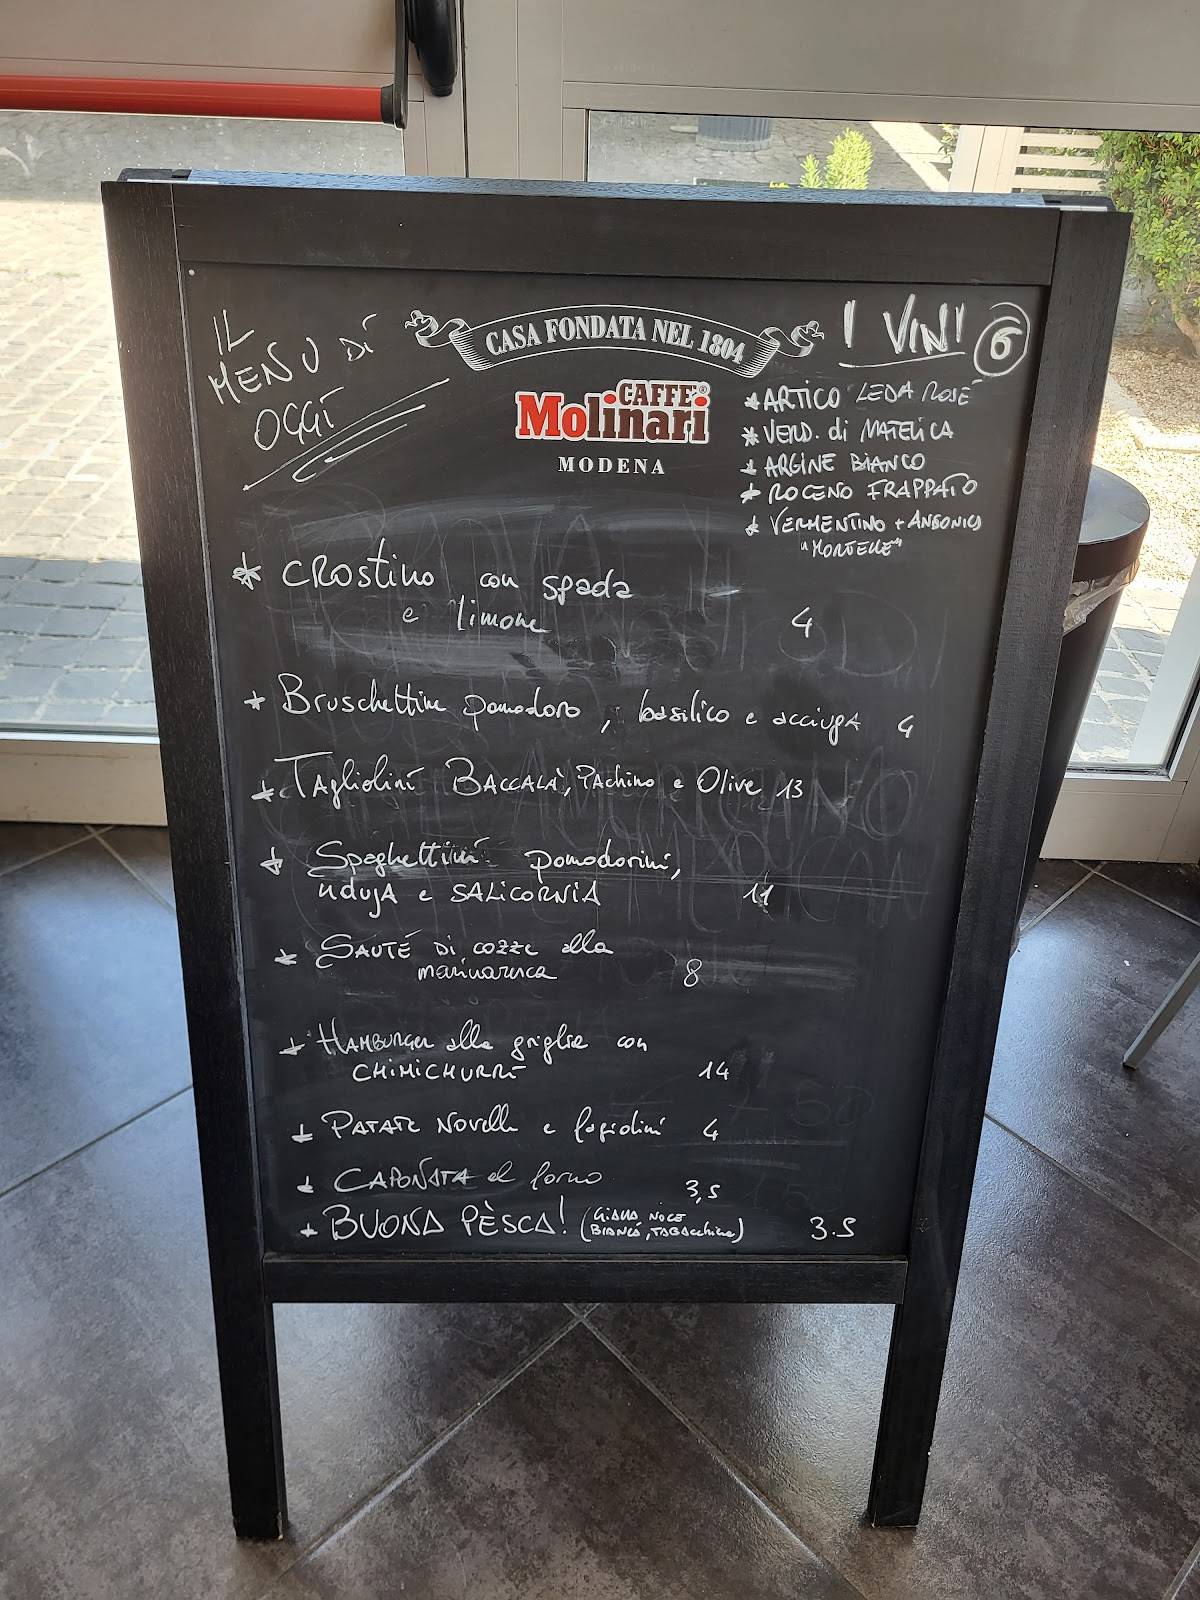 IL
MENU DI
OGGI
CASA FONDATA NEL 1804
CAFFÈ®
Molinari
MODENA
I VINI 6
* ARTICO LEDA ROSÉ
* VERD. di MATELICA
* ARGINE BIANCO
* ROCENO FRAPPATO
* VERMENTINO + ANSONICA
"MORTELLE"
* CROStino con spada
e limone 4
* Bruschettine pomodoro, basilico e acciuga 4
* TAgliolini BACCALÀ, PAchino e Olive 13
* Spaghettini pomodorini,
nduja e SALICORNIA 11
* SAUTÉ DI cozze alla
marinaresca 8
* HAMBURGER alla griglia con
CHIMICHURRI 14
* PATATE NOVelle e fagiolini 4
* CAPONATA al forno 3,5
* BUONA PÈSCA! (GIALLA, NOCE
BIANCA, TABACchiera) 3.5